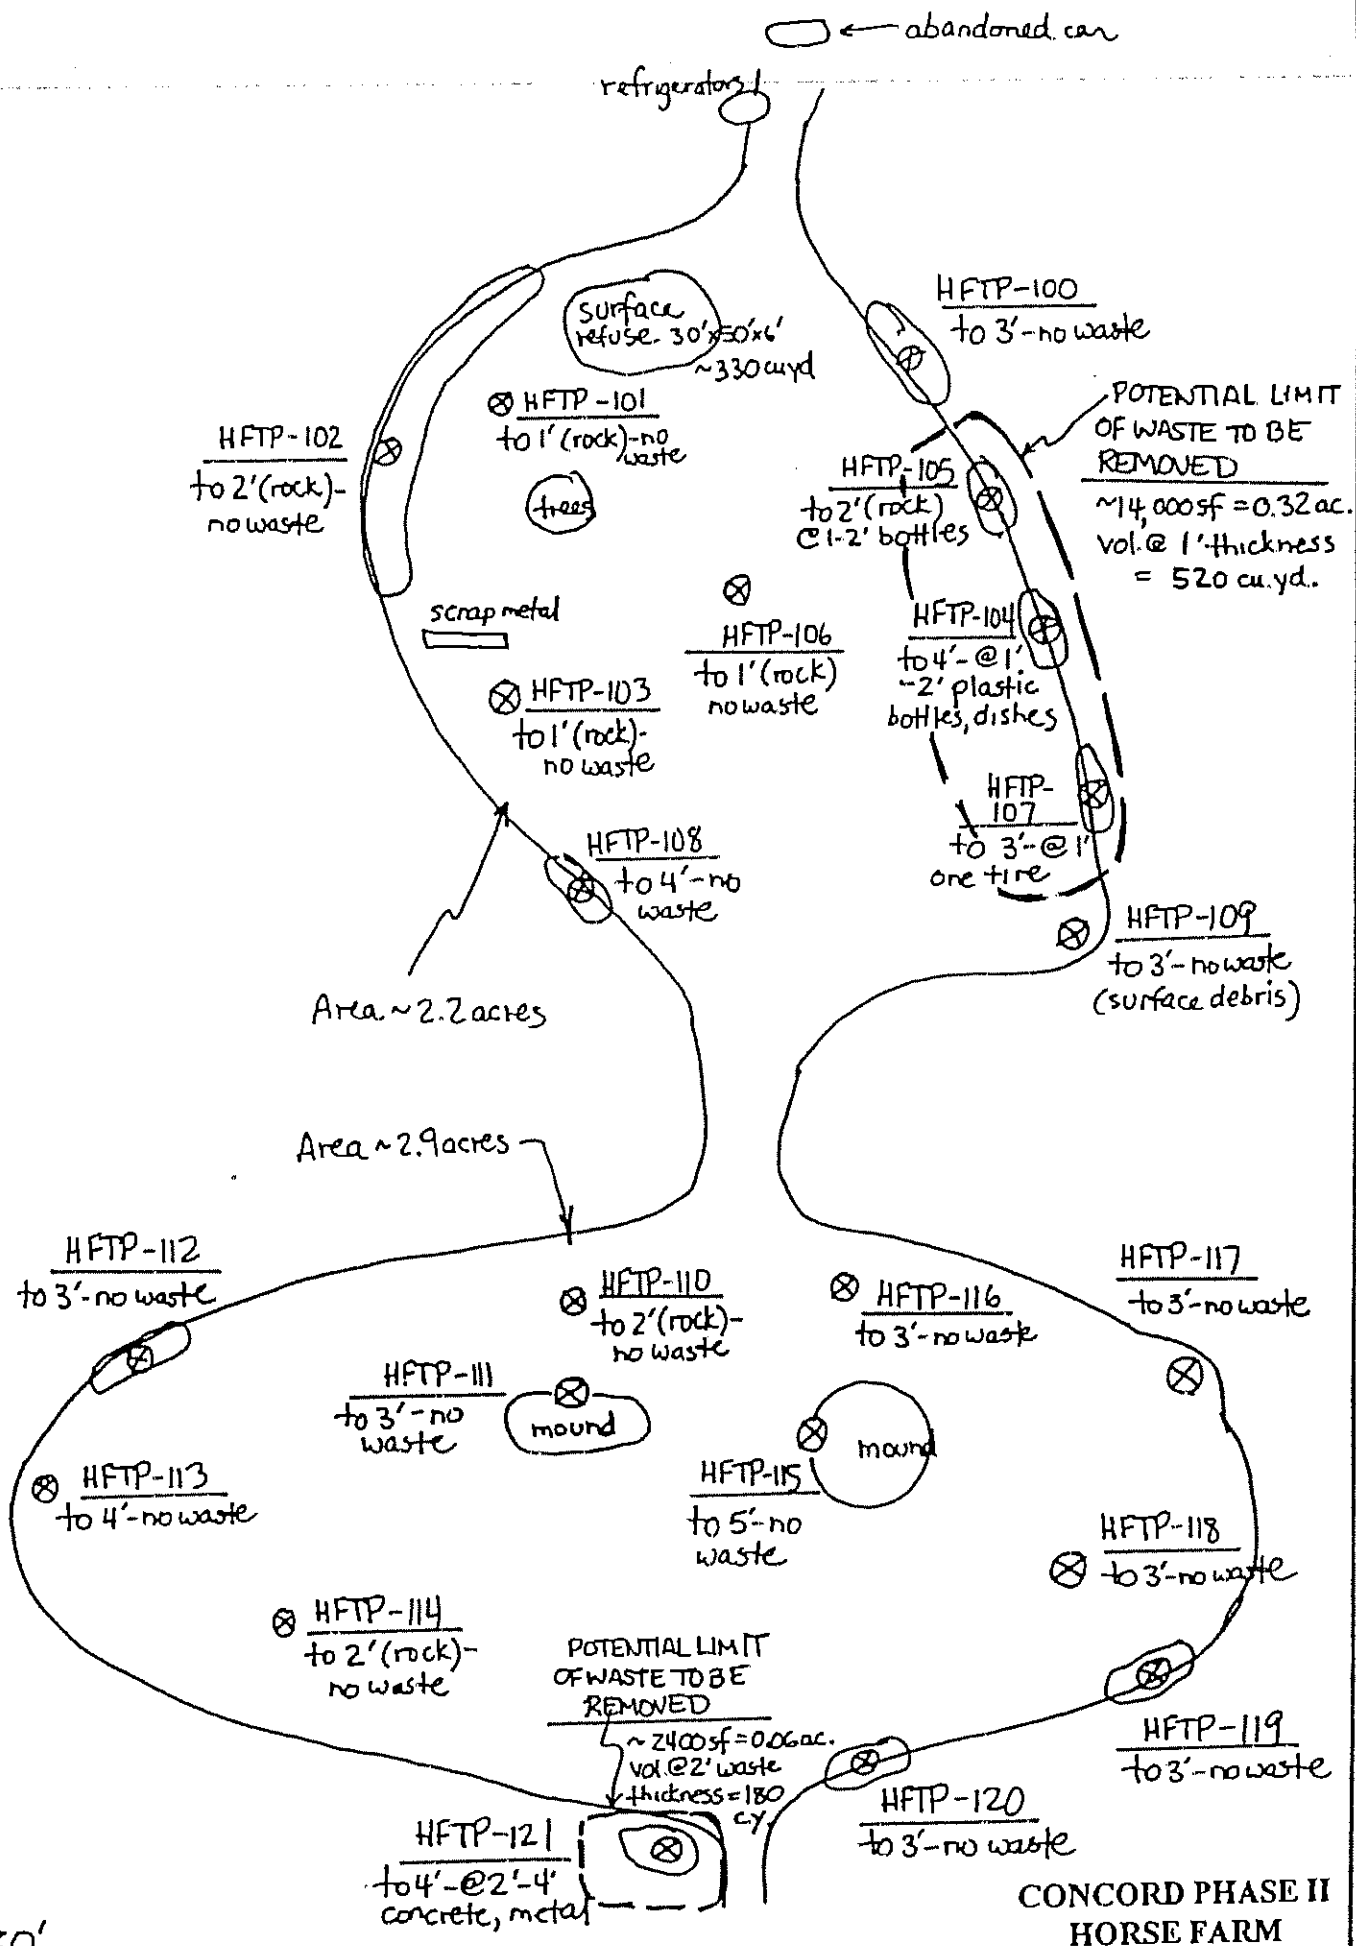 abandoned car
refrigerators
surface
refuse - 30'x50'x6'
~330 cuyd
HFTP-100
to 3'-no waste
HFTP-101
to 1' (rock)-no
waste
HFTP-102
to 2' (rock)-
no waste
trees
POTENTIAL LIMIT
OF WASTE TO BE
REMOVED
~14,000 sf = 0.32 ac.
vol. @ 1' thickness
= 520 cu.yd.
HFTP-105
to 2' (rock)
@ 1-2' bottles
scrap metal
HFTP-106
to 1' (rock)
no waste
HFTP-104
to 4'-@ 1'
-2' plastic
bottles, dishes
HFTP-103
to 1' (rock)-
no waste
HFTP-
107
to 3'-@ 1'
one tire
HFTP-108
to 4'-no
waste
HFTP-109
to 3'-no waste
(surface debris)
Area ~ 2.2 acres
Area ~ 2.9 acres
HFTP-112
to 3'-no waste
HFTP-110
to 2' (rock)-
no waste
HFTP-116
to 3'-no waste
HFTP-117
to 3'-no waste
HFTP-111
to 3'-no
waste
mound
mound
HFTP-113
to 4'-no waste
HFTP-115
to 5'-no
waste
HFTP-118
to 3'-no waste
HFTP-114
to 2' (rock)-
no waste
POTENTIAL LIMIT
OF WASTE TO BE
REMOVED
~ 2400 sf = 0.06 ac.
vol. @ 2' waste
thickness = 180
c.y.
HFTP-119
to 3'-no waste
HFTP-120
to 3'-no waste
HFTP-121
to 4'-@ 2'-4'
concrete, metal
CONCORD PHASE II
HORSE FARM